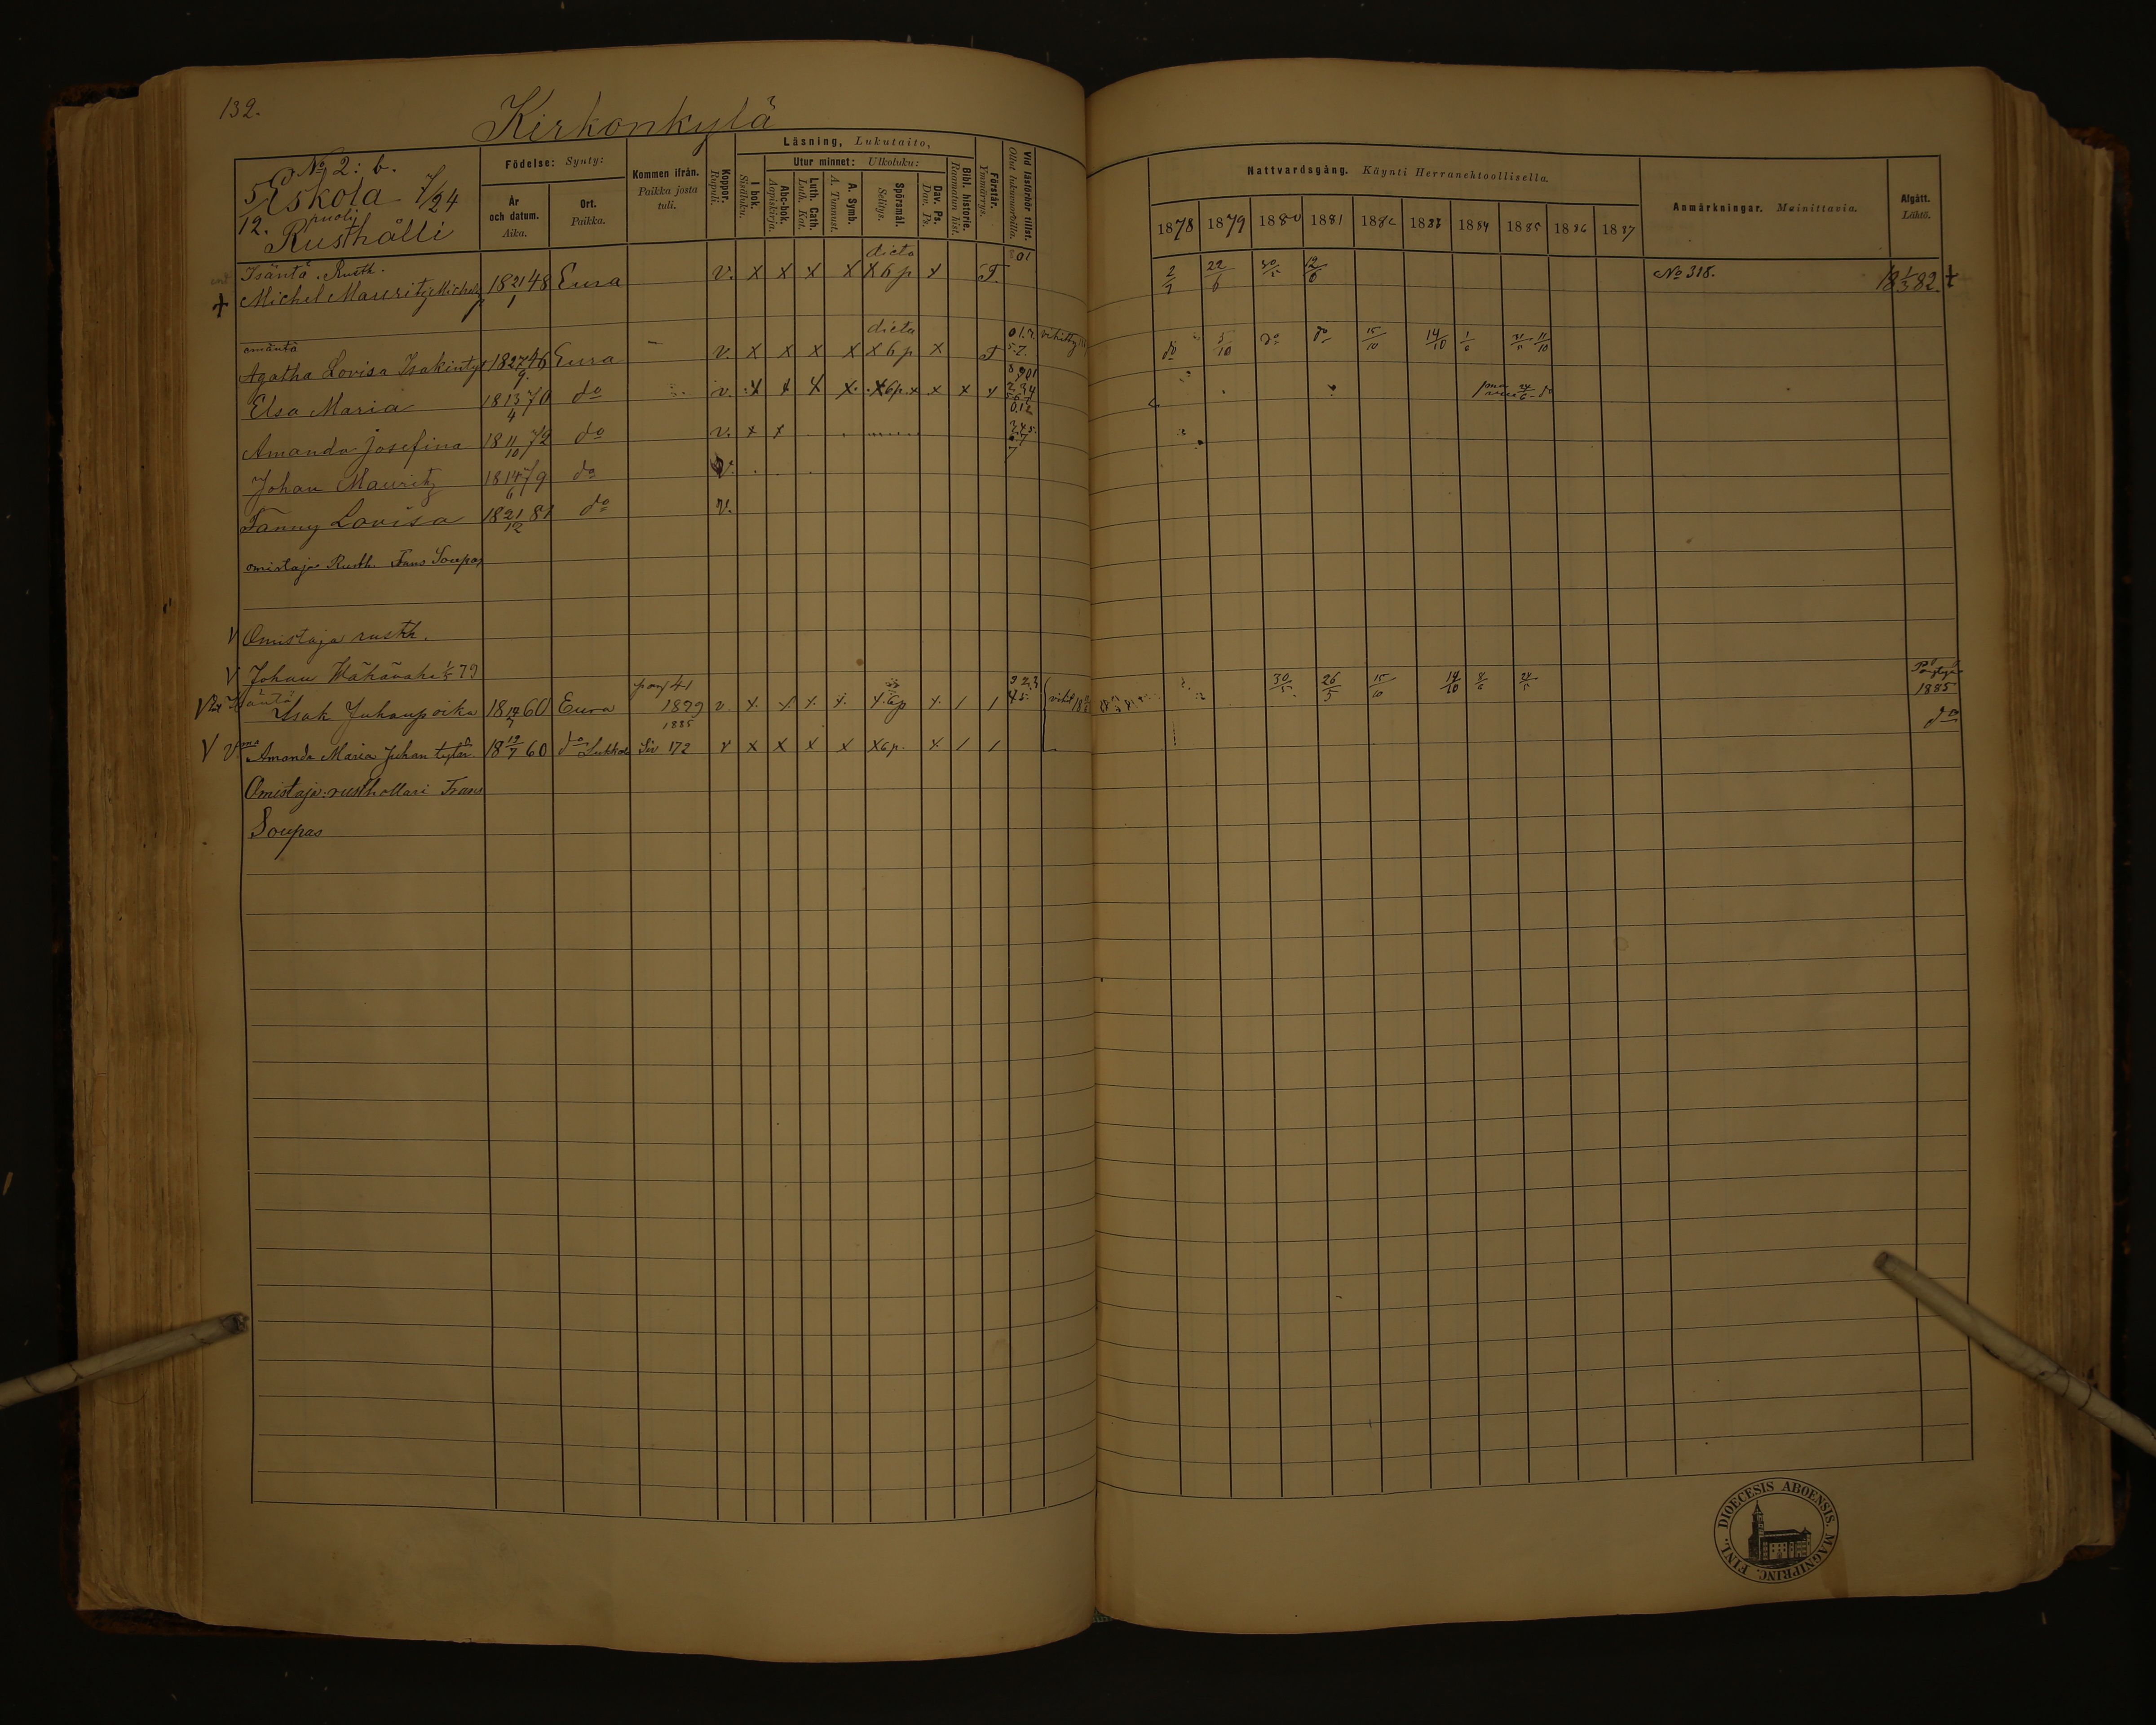 132.
Kirkonkylä
No 2: b.
5/12. Eskola 7/24
puoli
Rusthålli
Födelse: Synty:
År och datum. Aika.
Ort. Paikka.
Kommen ifrån. Paikka josta tuli.
Koppor. Rupuli.
Läsning, Lukutaito,
I bok. Sisäluku.
Utur minnet: Ulkoluku:
Abc-bok. Aapiskirja.
Luth. Cath. Luth. Kat.
A. Symb. A. Tunnust.
Spörsmål. Selitys.
Dav. Ps. Dav. Ps.
Bibl. historie. Raamatun hist.
Förstår. Ymmärrys.
Vid läsförhör tillst. Ollut lukuworoilla.
Nattvardsgång. Käynti Herranehtoollisella.
1878 1879 1880 1881 1882 1883 1884 1885 1886 1887
Anmärkningar. Muinittavia.
Afgått. Lähtö.
Isäntä. Rusth.
Michel Mauritz Michelsp 18 21/1 48 Eura v. x x x x dicto x 6 p x T 01 2/7 22/6 30/5 12/6 No 318. 18 1/3 82. +
emäntä
Agatha Lovisa Isakintyt 18 27/9 46 Eura v. x x x x dicto x 6 p x T do 5/10 do do 15/10 14/10 1/6 11/10
Elsa Maria 18 13/4 70 do v. x x x x x 6 p. x x x x 24/6 do
Amanda Josefina 18 11/10 72 do v. x x
Johan Mauritz 18 14/6 79 do v.
Fanny Lovisa 18 21/12 81 do v.
omistaja Rusth. Frans Soupas
Omistaja rusth.
Johan Wähäuahe 79
Isak Juhanpoika 18 60 Eura pag 41 1879 v. x x x x x 6p x / / 30/5 26/5 15/10 14/10 8/6 24/5 1885
1885
Amanda Maria Juhan tytär 18 19/7 60 do Luhkos Siv 172 v x x x x x 6 p. x / / do
Omistaja: rusthollari Frans
Soupas
DIOECESIS ABOENSIS. MAGNIPRINC. FINL.